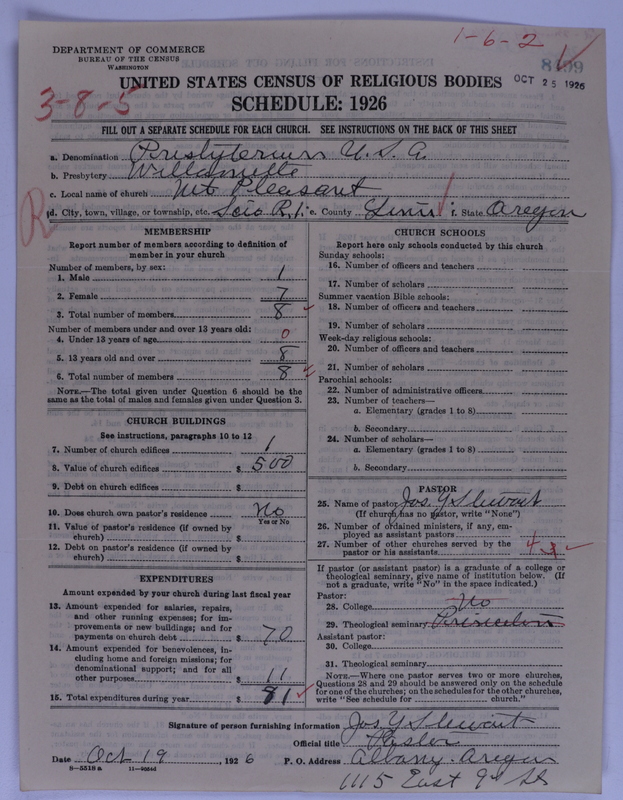 1-6-2
DEPARTMENT OF COMMERCE
BUREAU OF THE CENSUS
WASHINGTON
OCT 25 1926
UNITED STATES CENSUS OF RELIGIOUS BODIES
3-8-5
SCHEDULE: 1926
FILL OUT A SEPARATE SCHEDULE FOR EACH CHURCH. SEE INSTRUCTIONS ON THE BACK OF THIS SHEET
a. Denomination Presbyterian U.S.A.
b. Presbytery Willamette
c. Local name of church Mt Pleasant
R
d. City, town, village, or township, etc. Scio R.1; e. County Linn f. State Oregon
MEMBERSHIP
Report number of members according to definition of member in your church
Number of members, by sex:
1. Male 1
2. Female 7
3. Total number of members 8
Number of members under and over 13 years old:
4. Under 13 years of age 0
5. 13 years old and over 8
6. Total number of members 8
NOTE.—The total given under Question 6 should be
same as the total of males and females given under Question 3.
CHURCH BUILDINGS
See instructions, paragraphs 10 to 12
7. Number of church edifices 1
8. Value of church edifices $ 500
9. Debt on church edifices $
10. Does church own pastor's residence No
Yes or No
11. Value of pastor's residence (if owned by
church) $
12. Debt on pastor's residence (if owned by
church) $
EXPENDITURES
Amount expended by your church during last fiscal year
13. Amount expended for salaries, repairs,
and other running expenses; for im-
provements or new buildings; and for
payments on church debt $ 70
14. Amount expended for benevolences, in-
cluding home and foreign missions; for
denominational support; and for all
other purposes $ 11
15. Total expenditures during year $ 81
CHURCH SCHOOLS
Report here only schools conducted by this church
Sunday schools:
16. Number of officers and teachers
17. Number of scholars
Summer vacation Bible schools:
18. Number of officers and teachers
19. Number of scholars
Week-day religious schools:
20. Number of officers and teachers
21. Number of scholars
Parochial schools:
22. Number of administrative officers
23. Number of teachers—
a. Elementary (grades 1 to 8)
b. Secondary
24. Number of scholars—
a. Elementary (grades 1 to 8)
b. Secondary
PASTOR
25. Name of pastor Jos. Y Stewart
(If church has no pastor, write "None")
26. Number of ordained ministers, if any, em-
ployed as assistant pastors
27. Number of other churches served by the
pastor or his assistants 4 3
If pastor (or assistant pastor) is a graduate of a college or
theological seminary, give name of institution below. (If
not a graduate, write "No" in the space indicated.)
Pastor:
28. College No
29. Theological seminary Princeton
Assistant pastor:
30. College
31. Theological seminary
NOTE.—Where one pastor serves two or more churches,
Questions 28 and 29 should be answered only on the schedule
for one of the churches; on the schedules for the other churches,
write "See schedule for church."
Signature of person furnishing information Jos. Y Stewart
Official title Pastor
Date Oct 19, 1926 P. O. Address Albany. Oregon
8—5518 a
1115 East 9th St